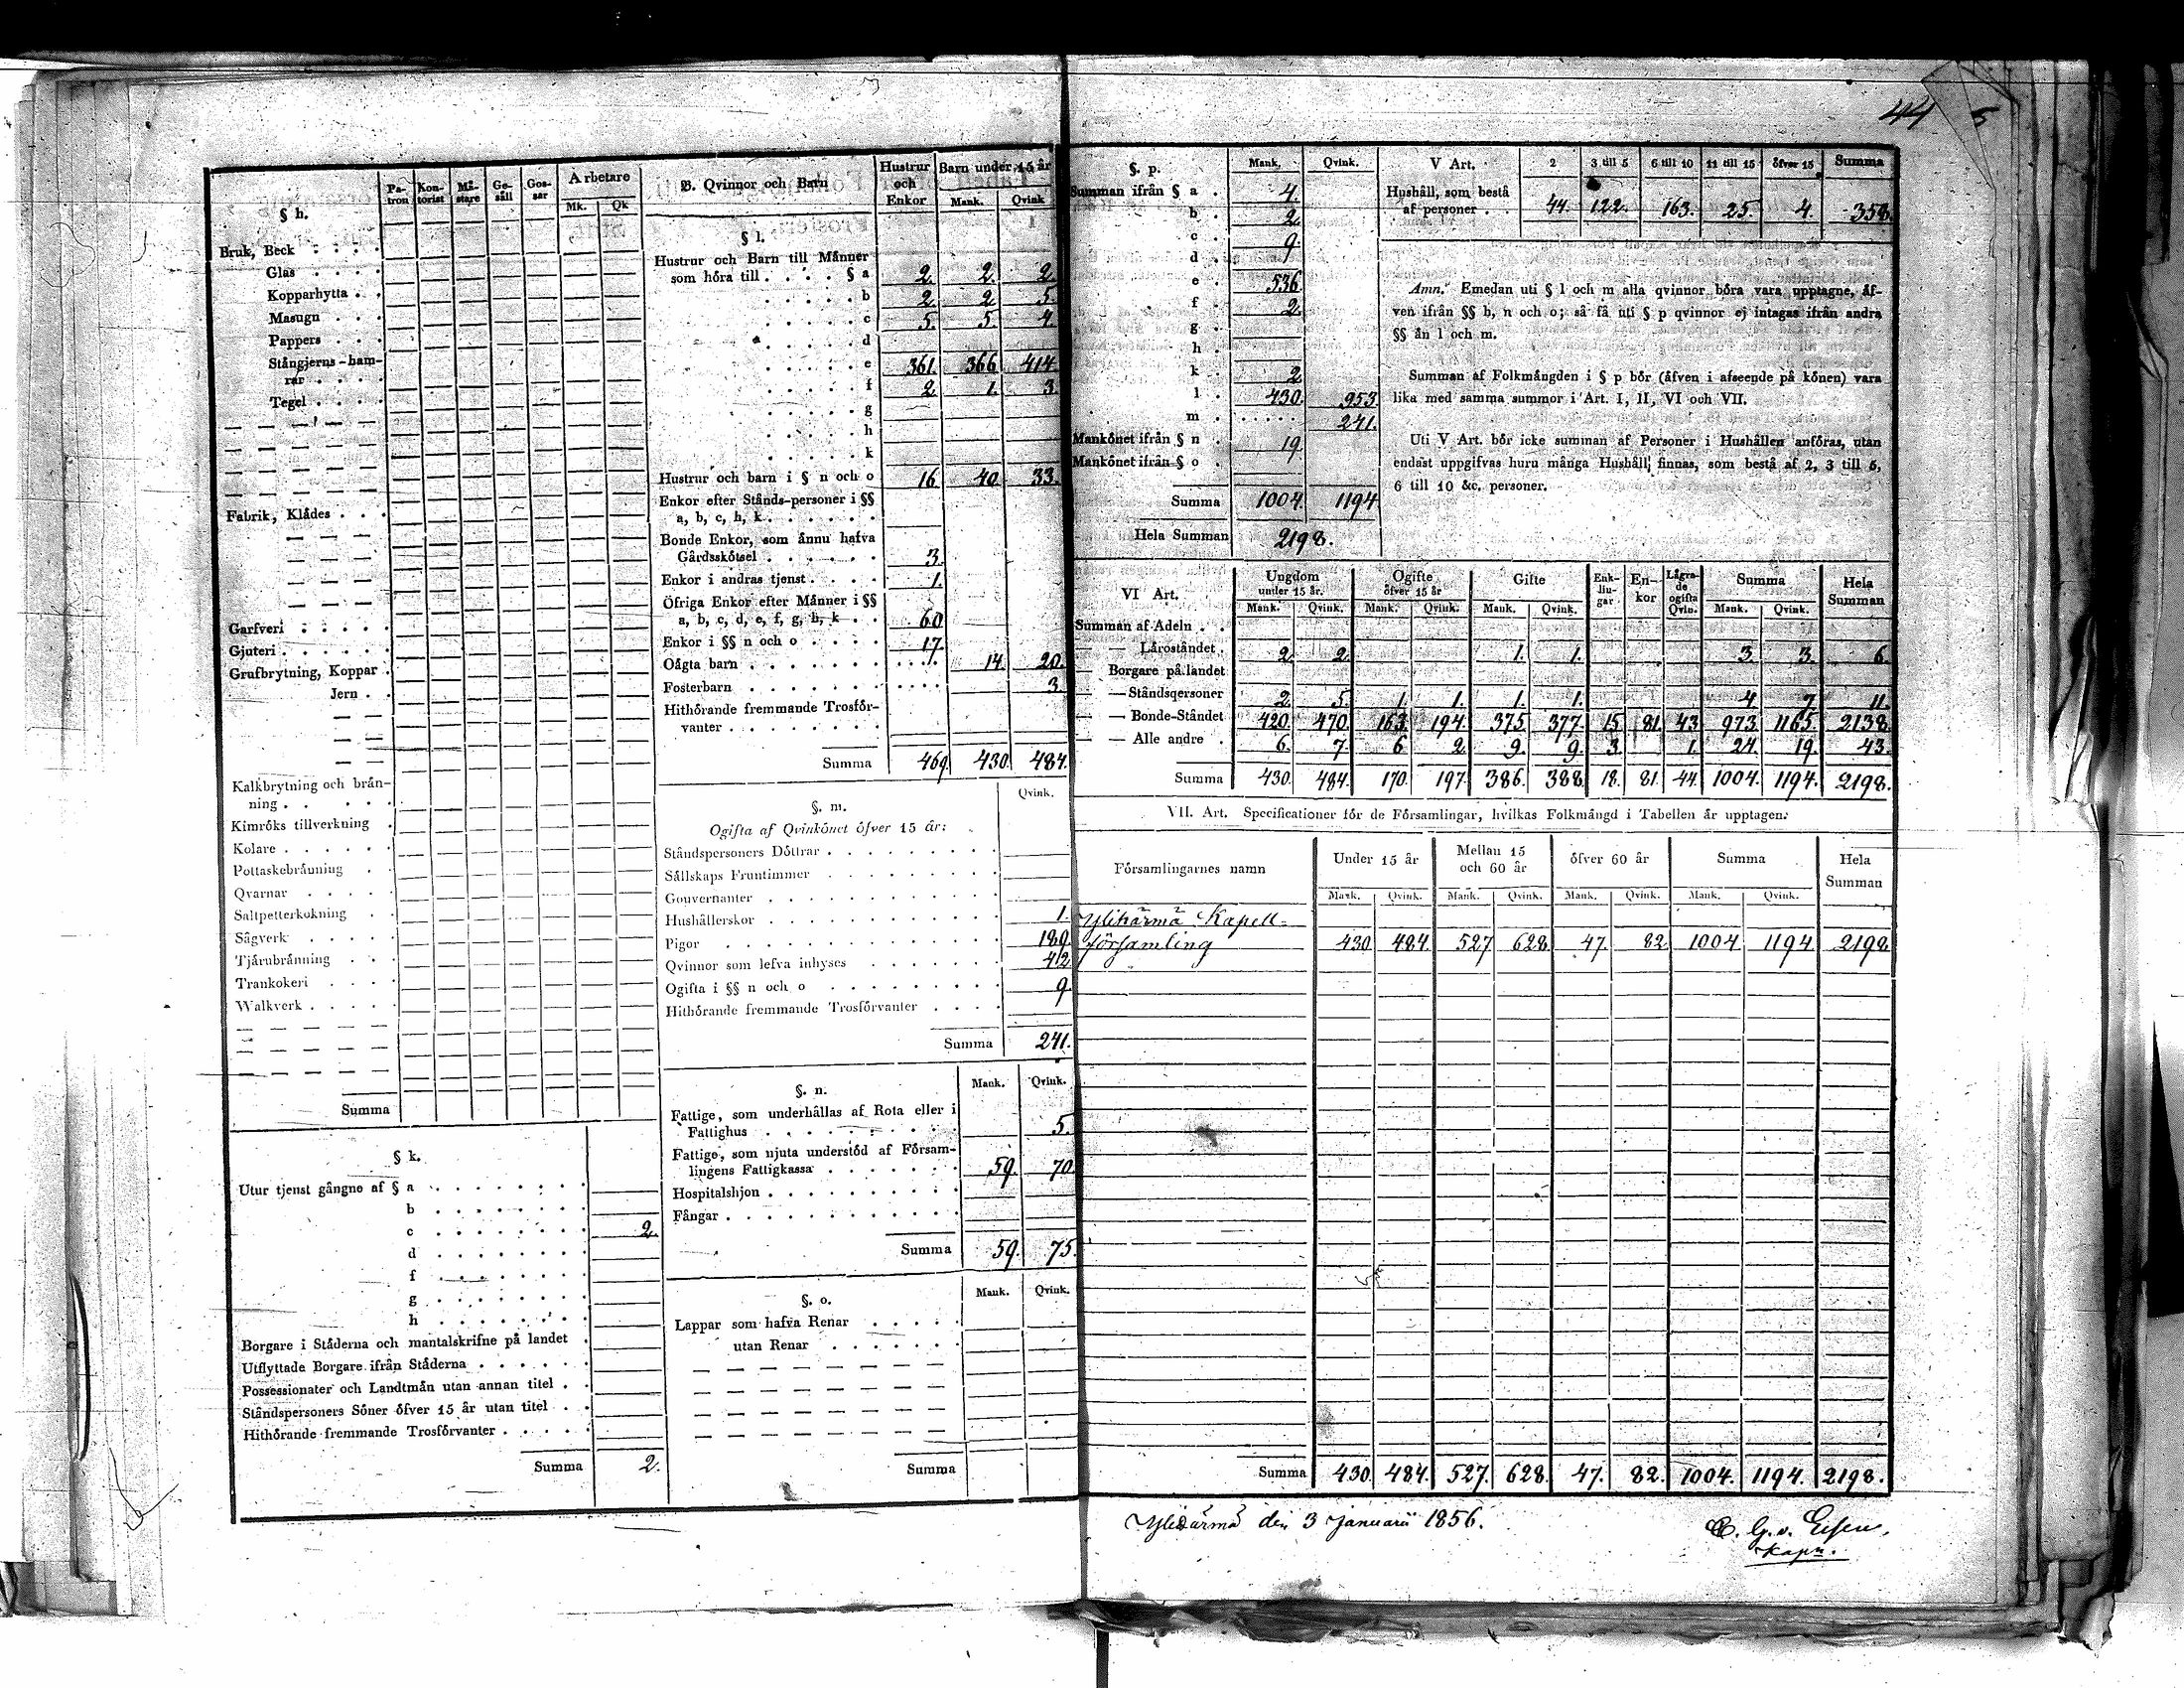 44 5
§ h.
Patron Kontorist Mästare Gesäll Gossar Arbetare
Mk. Qk
Bruk, Beck
Glas
Kopparhytta
Masugn
Pappers
Stångjerns-hamrar
Tegel
Fabrik, Klådes
Garfveri
Gjuteri
Grufbrytning, Koppar
Jern
Kalkbrytning och bränning
Kimröks tillverkning
Kolare
Pottaskebränning
Qvarnar
Saltpetterkokning
Sågverk
Tjärubränning
Trankokeri
Walkverk
Summa
§ k.
Utur tjenst gångne af § a
b
c 2.
d
f
g
h
Borgare i Städerna och mantalskrifne på landet
Utflyttade Borgare ifrån Städerna
Possessionater och Landtmän utan annan titel
Ståndspersoners Söner öfver 15 år utan titel
Hithörande fremmande Trosförvanter
Summa 2.
B. Qvinnor och Barn
Hustrur och Enkor
Barn under 15 år
Mank. Qvink
§ l.
Hustrur och Barn till Männer
som höra till § a 2. 2. 2.
b 2. 2. 5.
c 5. 5. 4.
d
e 361. 366 414.
f 2. 1. 3.
g
h
k
Hustrur och barn i § n och o 16 40 33.
Enkor efter Stånds-personer i §§
a, b, c, h, k
Bonde Enkor, som ännu hafva
Gårdsskötsel 3.
Enkor i andras tjenst 1.
Öfriga Enkor efter Männer i §§
a, b, c, d, e, f, g, h, k 60
Enkor i §§ n och o 17.
Oägta barn 14. 20.
Fosterbarn 3.
Hithörande fremmande Trosförvanter
Summa 469. 430. 484.
§. m. Qvink.
Ogifta af Qvinkönet öfver 15 år:
Ståndspersoners Döttrar
Sällskaps Fruntimmer
Gouvernanter
Hushållerskor 1.
Pigor 189.
Qvinnor som lefva inhyses 42
Ogifta i §§ n och o 9.
Hithörande fremmande Trosförvanter
Summa 241.
§. n. Mank. Qvink.
Fattige, som underhållas af Rota eller i
Fattighus 5.
Fattige, som njuta understöd af Församlingens Fattigkassa 59. 70
Hospitalshjon
Fångar
Summa 59. 75.
§. o. Mank. Qvink.
Lappar som hafva Renar
utan Renar
Summa
§. p. Mank. Qvink.
Summan ifrån § a 4.
b 2.
c 9.
d
e 536
f 2.
g
h
k 2
l 430. 953.
m 241.
Mankönet ifrån § n 19.
Mankönet ifrån § o
Summa 1004. 1194
Hela Summan 2198.
V Art. 2 3 till 5 6 till 10 11 till 15 öfver 15 Summa
Hushåll, som bestå
af personer 44. 122. 163. 25. 4. 358.
Anm. Emedan uti § l och m alla qvinnor böra vara upptagne, äf-
ven ifrån §§ b, n och o; så få uti § p qvinnor ej intagas ifrån andra
§§ än l och m.
Summan af Folkmängden i § p bör (äfven i afseende på könen) vara
lika med samma summor i Art. I, II, VI och VII.
Uti V Art. bör icke summan af Personer i Hushållen anföras, utan
endast uppgifvas huru många Hushåll finnas, som bestå af 2, 3 till 5,
6 till 10 &c. personer.
VI Art.
Ungdom under 15 år. Ogifte öfver 15 år Gifte Enklingar Enkor Lägrade ogifta Qvin. Summa Hela Summan
Mank. Qvink. Mank. Qvink. Mank. Qvink. Mank. Qvink.
Summan af Adeln
— — Läroståndet 2. 2. 1. 1. 3. 3. 6.
— Borgare på landet
— — Ståndsqersoner 2. 5. 1. 1. 1. 1. 4 7 11.
— — Bonde-Ståndet 420. 470. 163. 194. 375. 377. 15. 81. 43. 973. 1165. 2138.
— — Alle andre 6. 7. 6 2. 9. 9. 3. 1. 24. 19. 43.
Summa 430. 484. 170. 197. 386. 388. 18. 81. 44. 1004. 1194. 2198.
VII. Art. Specificationer för de Församlingar, hvilkas Folkmängd i Tabellen är upptagen.
Församlingarnes namn Under 15 år Mellan 15 och 60 år öfver 60 år Summa Hela Summan
Mank. Qvink. Mank. Qvink. Mank. Qvink. Mank. Qvink.
Ylihärmä Kapell-
församling 430. 484. 527 628. 47. 82. 1004. 1194. 2198
Summa 430. 484. 527. 628. 47. 82. 1004. 1194. 2198.
Ylihärmä den 3 Januarii 1856.